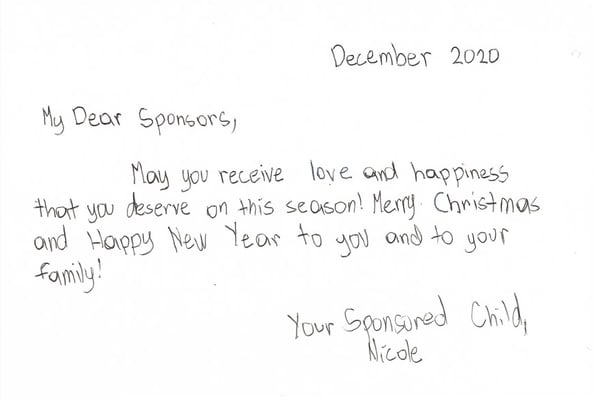 December 2020
My Dear Sponsors,
May you receive love and happiness
that you deserve on this season! Merry Christmas
and Happy New Year to you and to your
family!
Your Sponsored Child,
Nicole